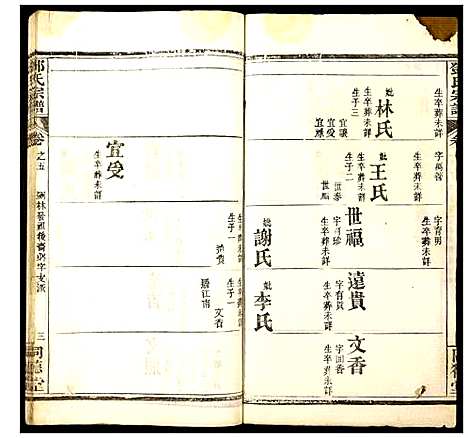 鄧氏宗譜
字英畧
生卒葬未詳
妣林氏
生卒葬未詳
生子三
宜讓
宜謙
宜受
生卒葬未詳
字育男
生卒葬未詳
妣王氏
生卒葬未詳
生子二
世泰
世福
世福
字育珍
生卒葬未詳
妣謝氏
生卒葬未詳
生子一
遠貴
遠貴
字育賓
生卒葬未詳
妣李氏
生卒葬未詳
生子一
文香
居江南
文香
字回香
生卒葬未詳
同德堂
鄧氏宗譜
卷之五
三
同德堂